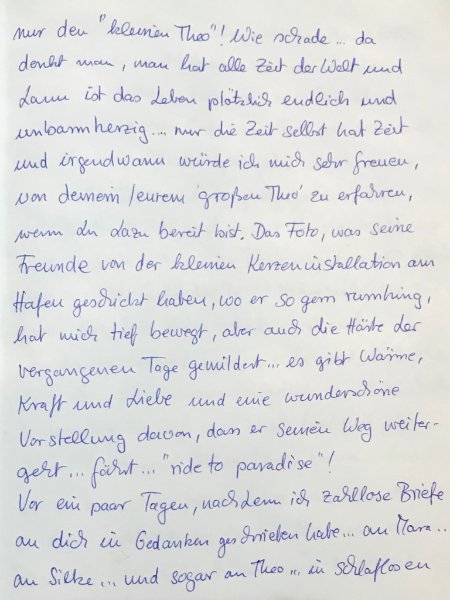 nur den "kleinen Theo"! Wie schade... da
denkt man, man hat alle Zeit der Welt und
dann ist das Leben plötzlich endlich und
unbarmherzig... nur die Zeit selbst hat Zeit
und irgendwann würde ich mich sehr freuen,
von deinem/eurem 'großen Theo' zu erfahren,
wenn du dazu bereit bist. Das Foto, was seine
Freunde von der kleinen Kerzeninstallation am
Hafen geschickt haben, wo er so gern rumhing,
hat mich tief bewegt, aber auch die Härte der
vergangenen Tage gemildert... es gibt Wärme,
Kraft und Liebe und eine wunderschöne
Vorstellung davon, dass er seinen Weg weiter-
geht... fährt... "ride to paradise"!
Vor ein paar Tagen, nachdem ich zahllose Briefe
an dich in Gedanken geschrieben habe... an Mara..
an Silke... und sogar an Theo... in schlaflosen